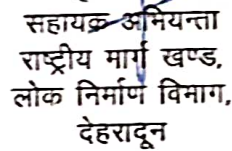 सहायक अभियन्ता
राष्ट्रीय मार्ग खण्ड,
लोक निर्माण विभाग,
देहरादून